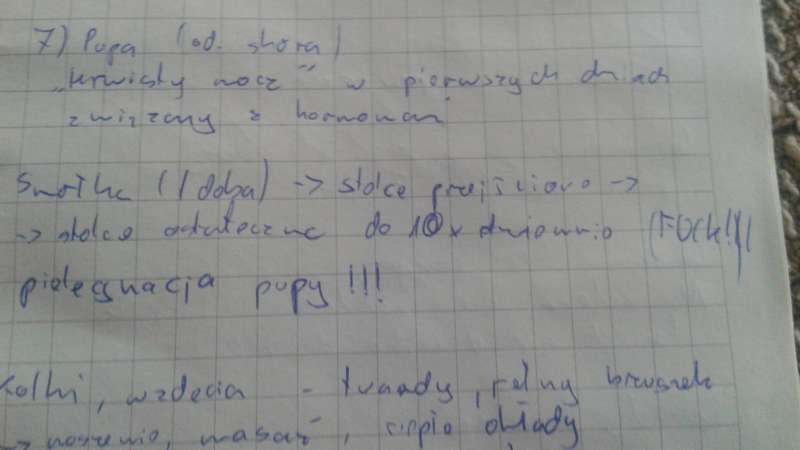 7) Pupa (od. skóra)
„krwisty mocz” w pierwszych dniach
związany z hormonami
Smółka (1 doba) -> stolce przejściowe ->
-> stolce ostateczne do 10x dziennie (FUCK!!)
pielęgnacja pupy!!!
Kolki, wzdęcia - twardy, pełny brzuszek
-> noszenie, masaż, ciepłe okłady